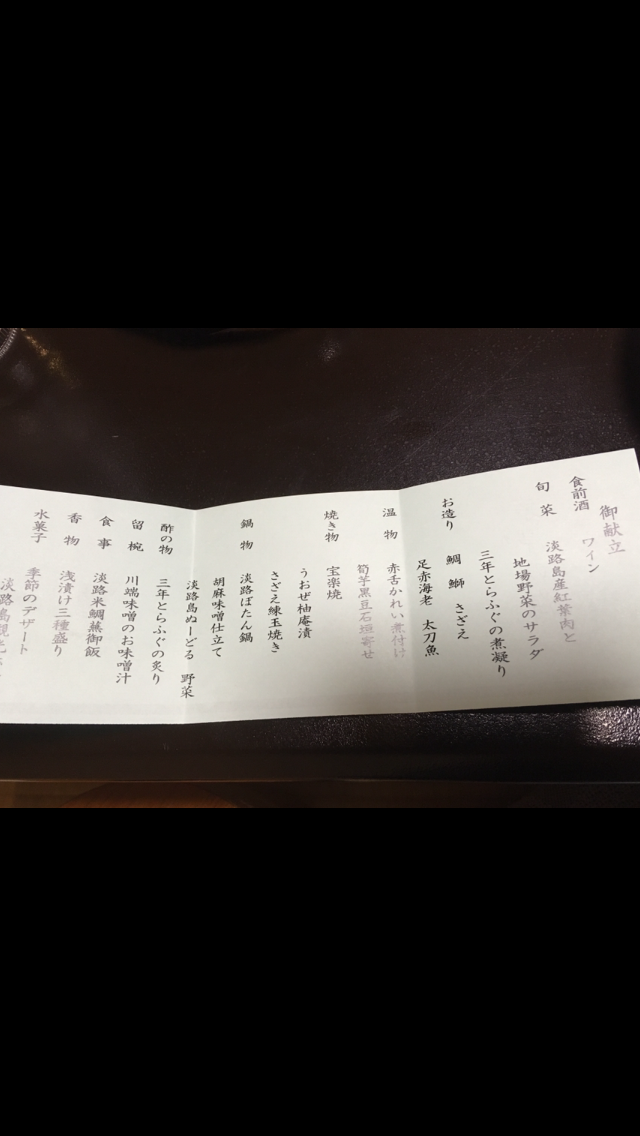 御献立
食前酒 ワイン
旬菜 淡路島産紅葉肉と
地場野菜のサラダ
三年とらふぐの煮凝り
お造り 鯛 鰤 さざえ
足赤海老 太刀魚
温物 赤舌かれい煮付け
筍芋黒豆石垣寄せ
焼き物 宝楽焼
うおぜ柚庵漬
さざえ練玉焼き
鍋物 淡路ぼたん鍋
胡麻味噌仕立て
淡路島ぬーどる 野菜
酢の物 三年とらふぐの炙り
留椀 川端味噌のお味噌汁
食事 淡路米鯛蕪御飯
香物 浅漬け三種盛り
水菓子 季節のデザート
淡路島観光